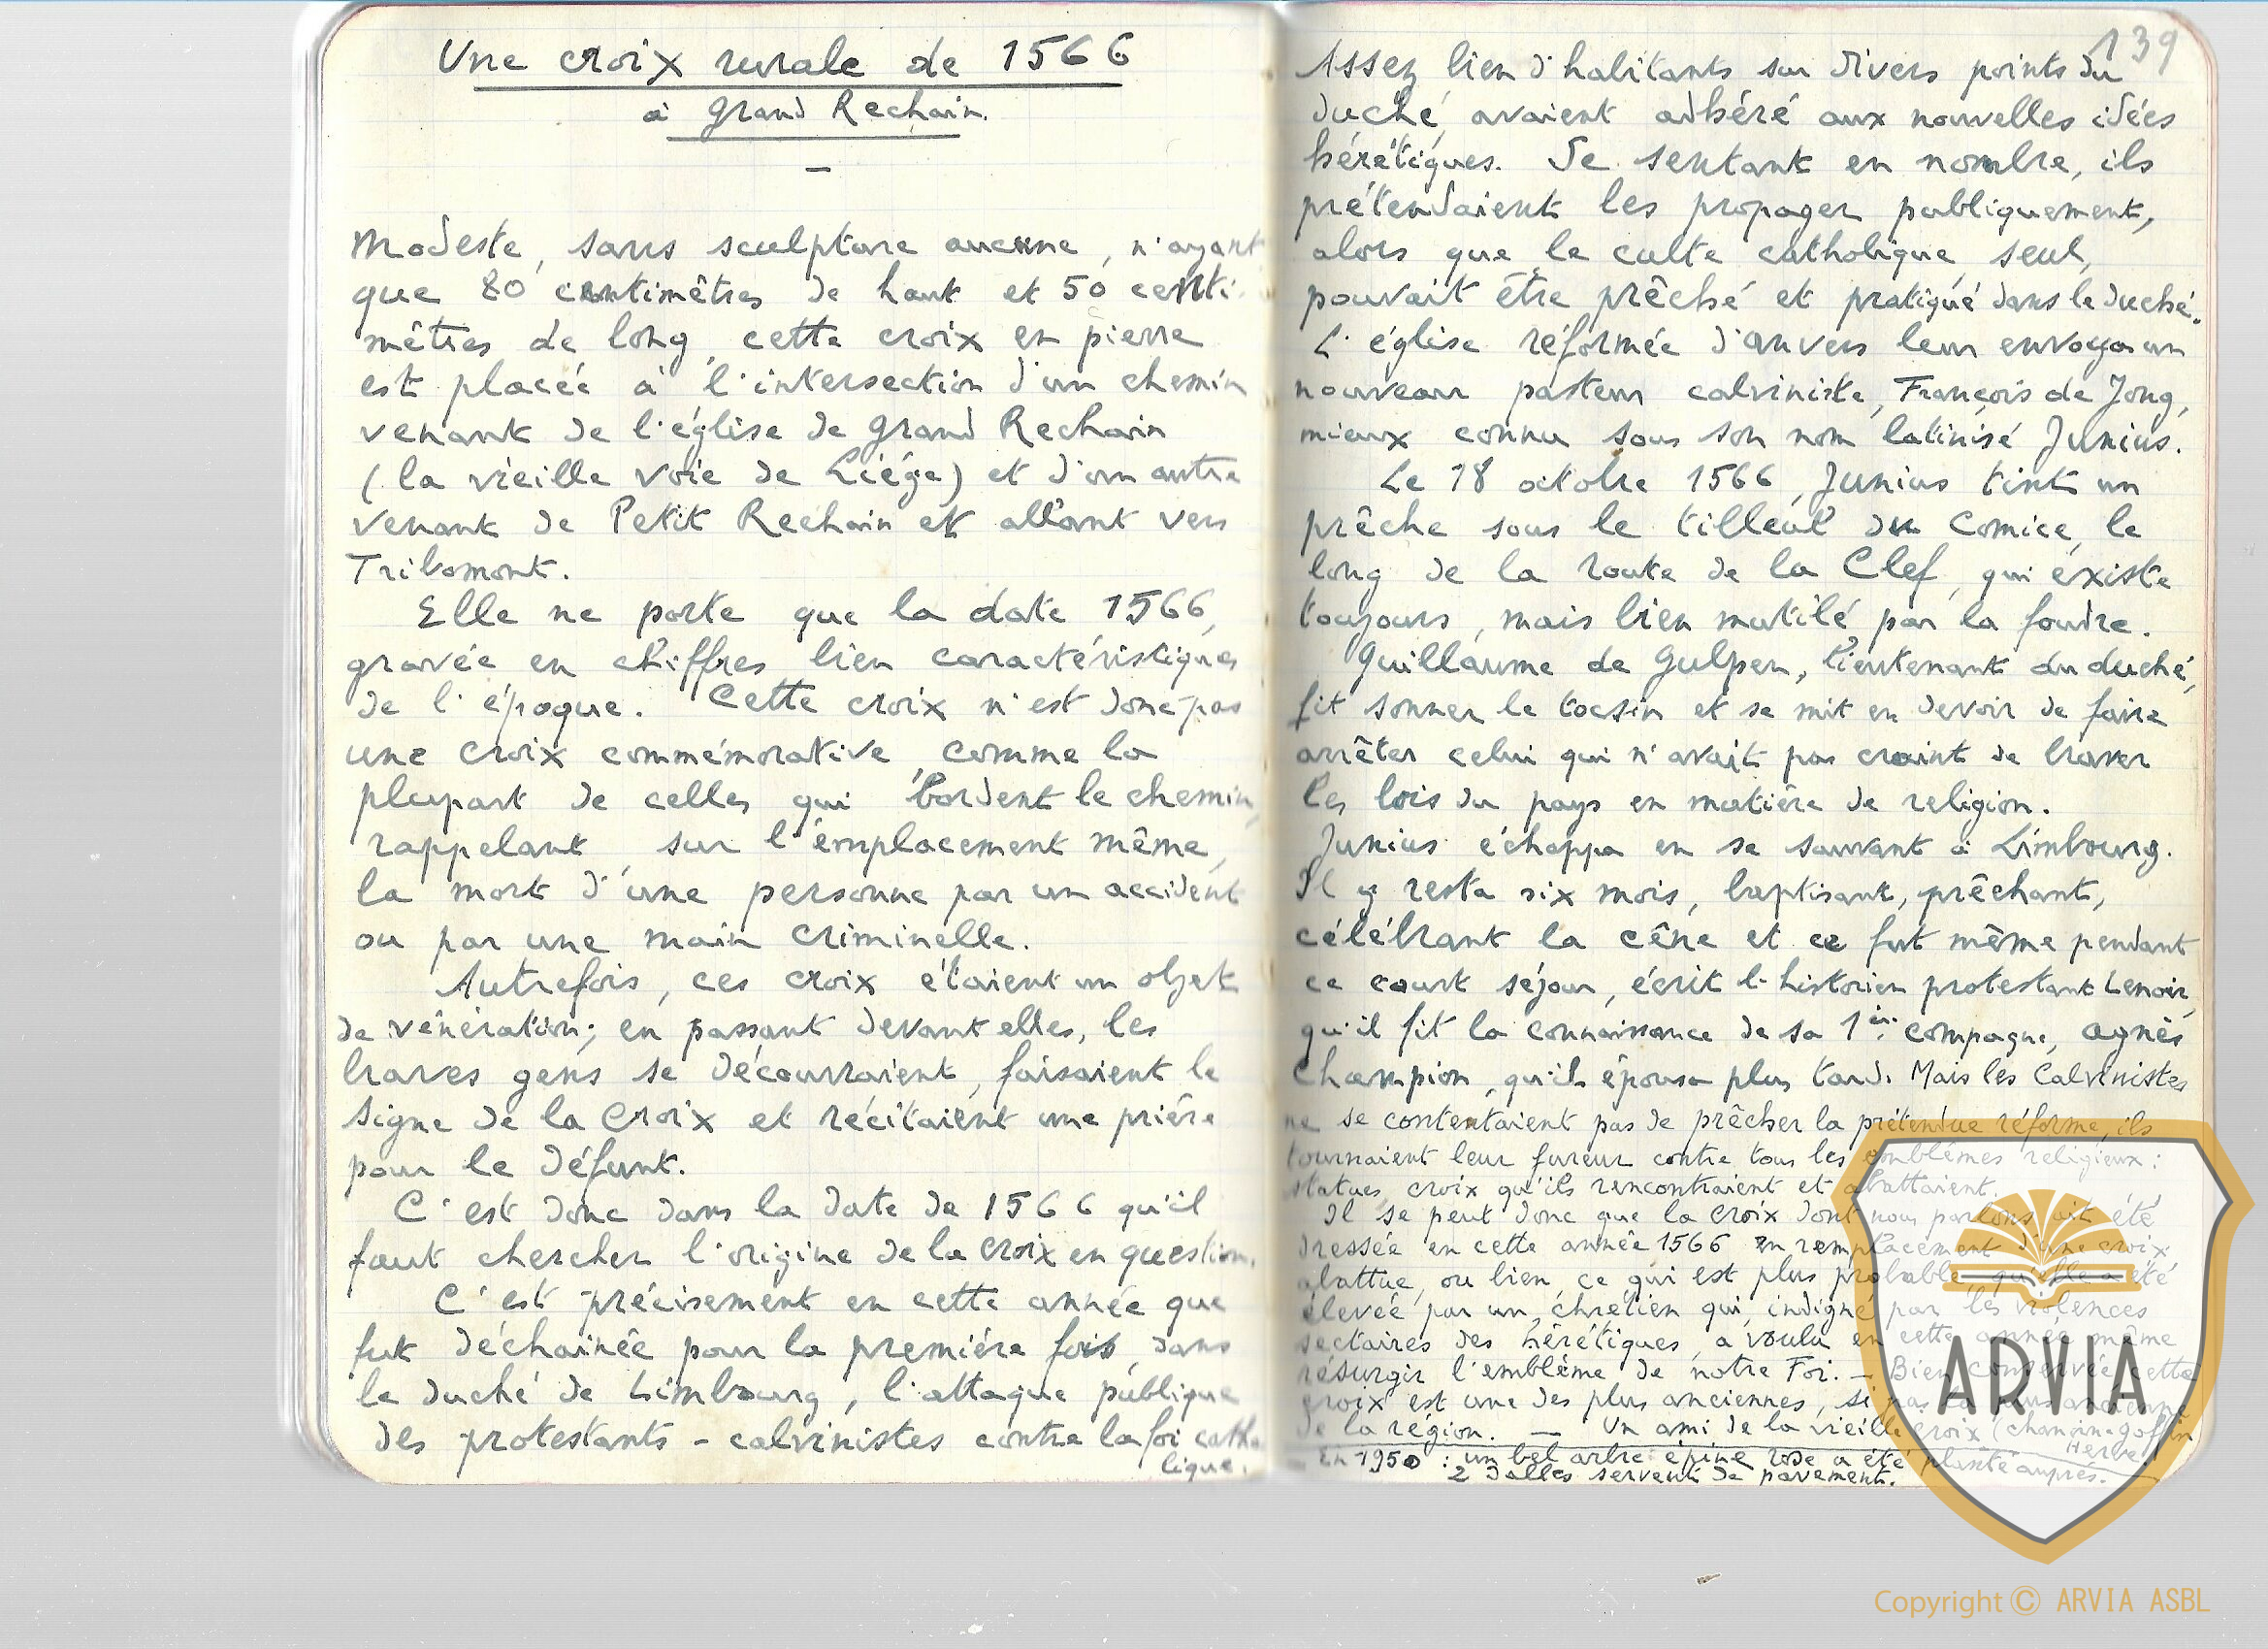 Une croix rurale de 1566
à Grand Rechain.
—
Modeste, sans sculpture aucune, n'ayant
que 80 centimêtres de haut et 50 centi-
mêtres de long, cette croix en pierre
est placée à l'intersection d'un chemin
venant de l'église de Grand Rechain
(la vieille voie de Liége) et d'un autre
venant de Petit Rechain et allant vers
Tribomont.
Elle ne porte que la date 1566,
gravée en chiffres bien caractéristiques
de l'époque. Cette croix n'est donc pas
une croix commémorative, comme la
plupart de celles qui bordent le chemin,
rappelant, sur l'emplacement même,
la mort d'une personne par un accident
ou par une main criminelle.
Autrefois, ces croix étaient un objet
de vénération; en passant devant elles, les
braves gens se découvraient, faisaient le
signe de la Croix et récitaient une prière
pour le défunt.
C'est donc dans la date de 1566 qu'il
faut chercher l'origine de la croix en question.
C'est précisement en cette année que
fut déchainée pour la première fois, dans
le duché de Limbourg, l'attaque publique
des protestants - calvinistes contre la foi catho
lique.
139
Assez bien d'habitants sur divers points du
duché avaient adhéré aux nouvelles idées
hérétiques. Se sentant en nombre, ils
prétendaient les propager publiquement,
alors que le culte catholique seul,
pouvait être prêché et pratiqué dans le duché.
L'église réformée d'Anvers leur envoya un
nouveau pasteur calviniste, François de Jong,
mieux connu sous son nom latinisé Junius.
Le 18 octobre 1566, Junius tint un
prêche sous le tilleul du Comice, le
long de la route de la Clef, qui existe
toujours, mais bien mutilé par la foudre.
Guillaume de Gulpen, lieutenant du duché,
fit sonner le tocsin et se mit en devoir de faire
arrêter celui qui n'avait pas craint de braver
les lois du pays en matière de religion.
Junius échappa en se sauvant à Limbourg.
Il y resta six mois, baptisant, prêchant,
célébrant la cêne et ce fut même pendant
ce court séjour, écrit l'historien protestant Lenoir,
qu'il fit la connaissance de sa 1èr. compagne, Agnès
Champion, qu'il épousa plus tard. Mais les Calvinistes
ne se contentaient pas de prêcher la prétendue réforme, ils
tournaient leur fureur contre tous les emblèmes religieux:
statues, croix qu'ils rencontraient et abattaient.
Il se peut donc que la Croix dont nous parlons ait été
dressée en cette année 1566 en remplacement d'une croix
abattue, ou bien, ce qui est plus probable, qu'elle a été
élevée par un chrétien qui, indigné par les violences
sectaires des hérétiques, a voulu en cette année même
résurgir l'emblème de notre Foi. — Bien conservée cette
croix est une des plus anciennes, si pas la plus ancienne
de la région. — Un ami de la vieille croix (chanoine Goffin
Herve)
En 1950 : un bel arbre épine rose a été planté auprès.
2 dalles servent de pavement.
ARVIA
Copyright © ARVIA ASBL